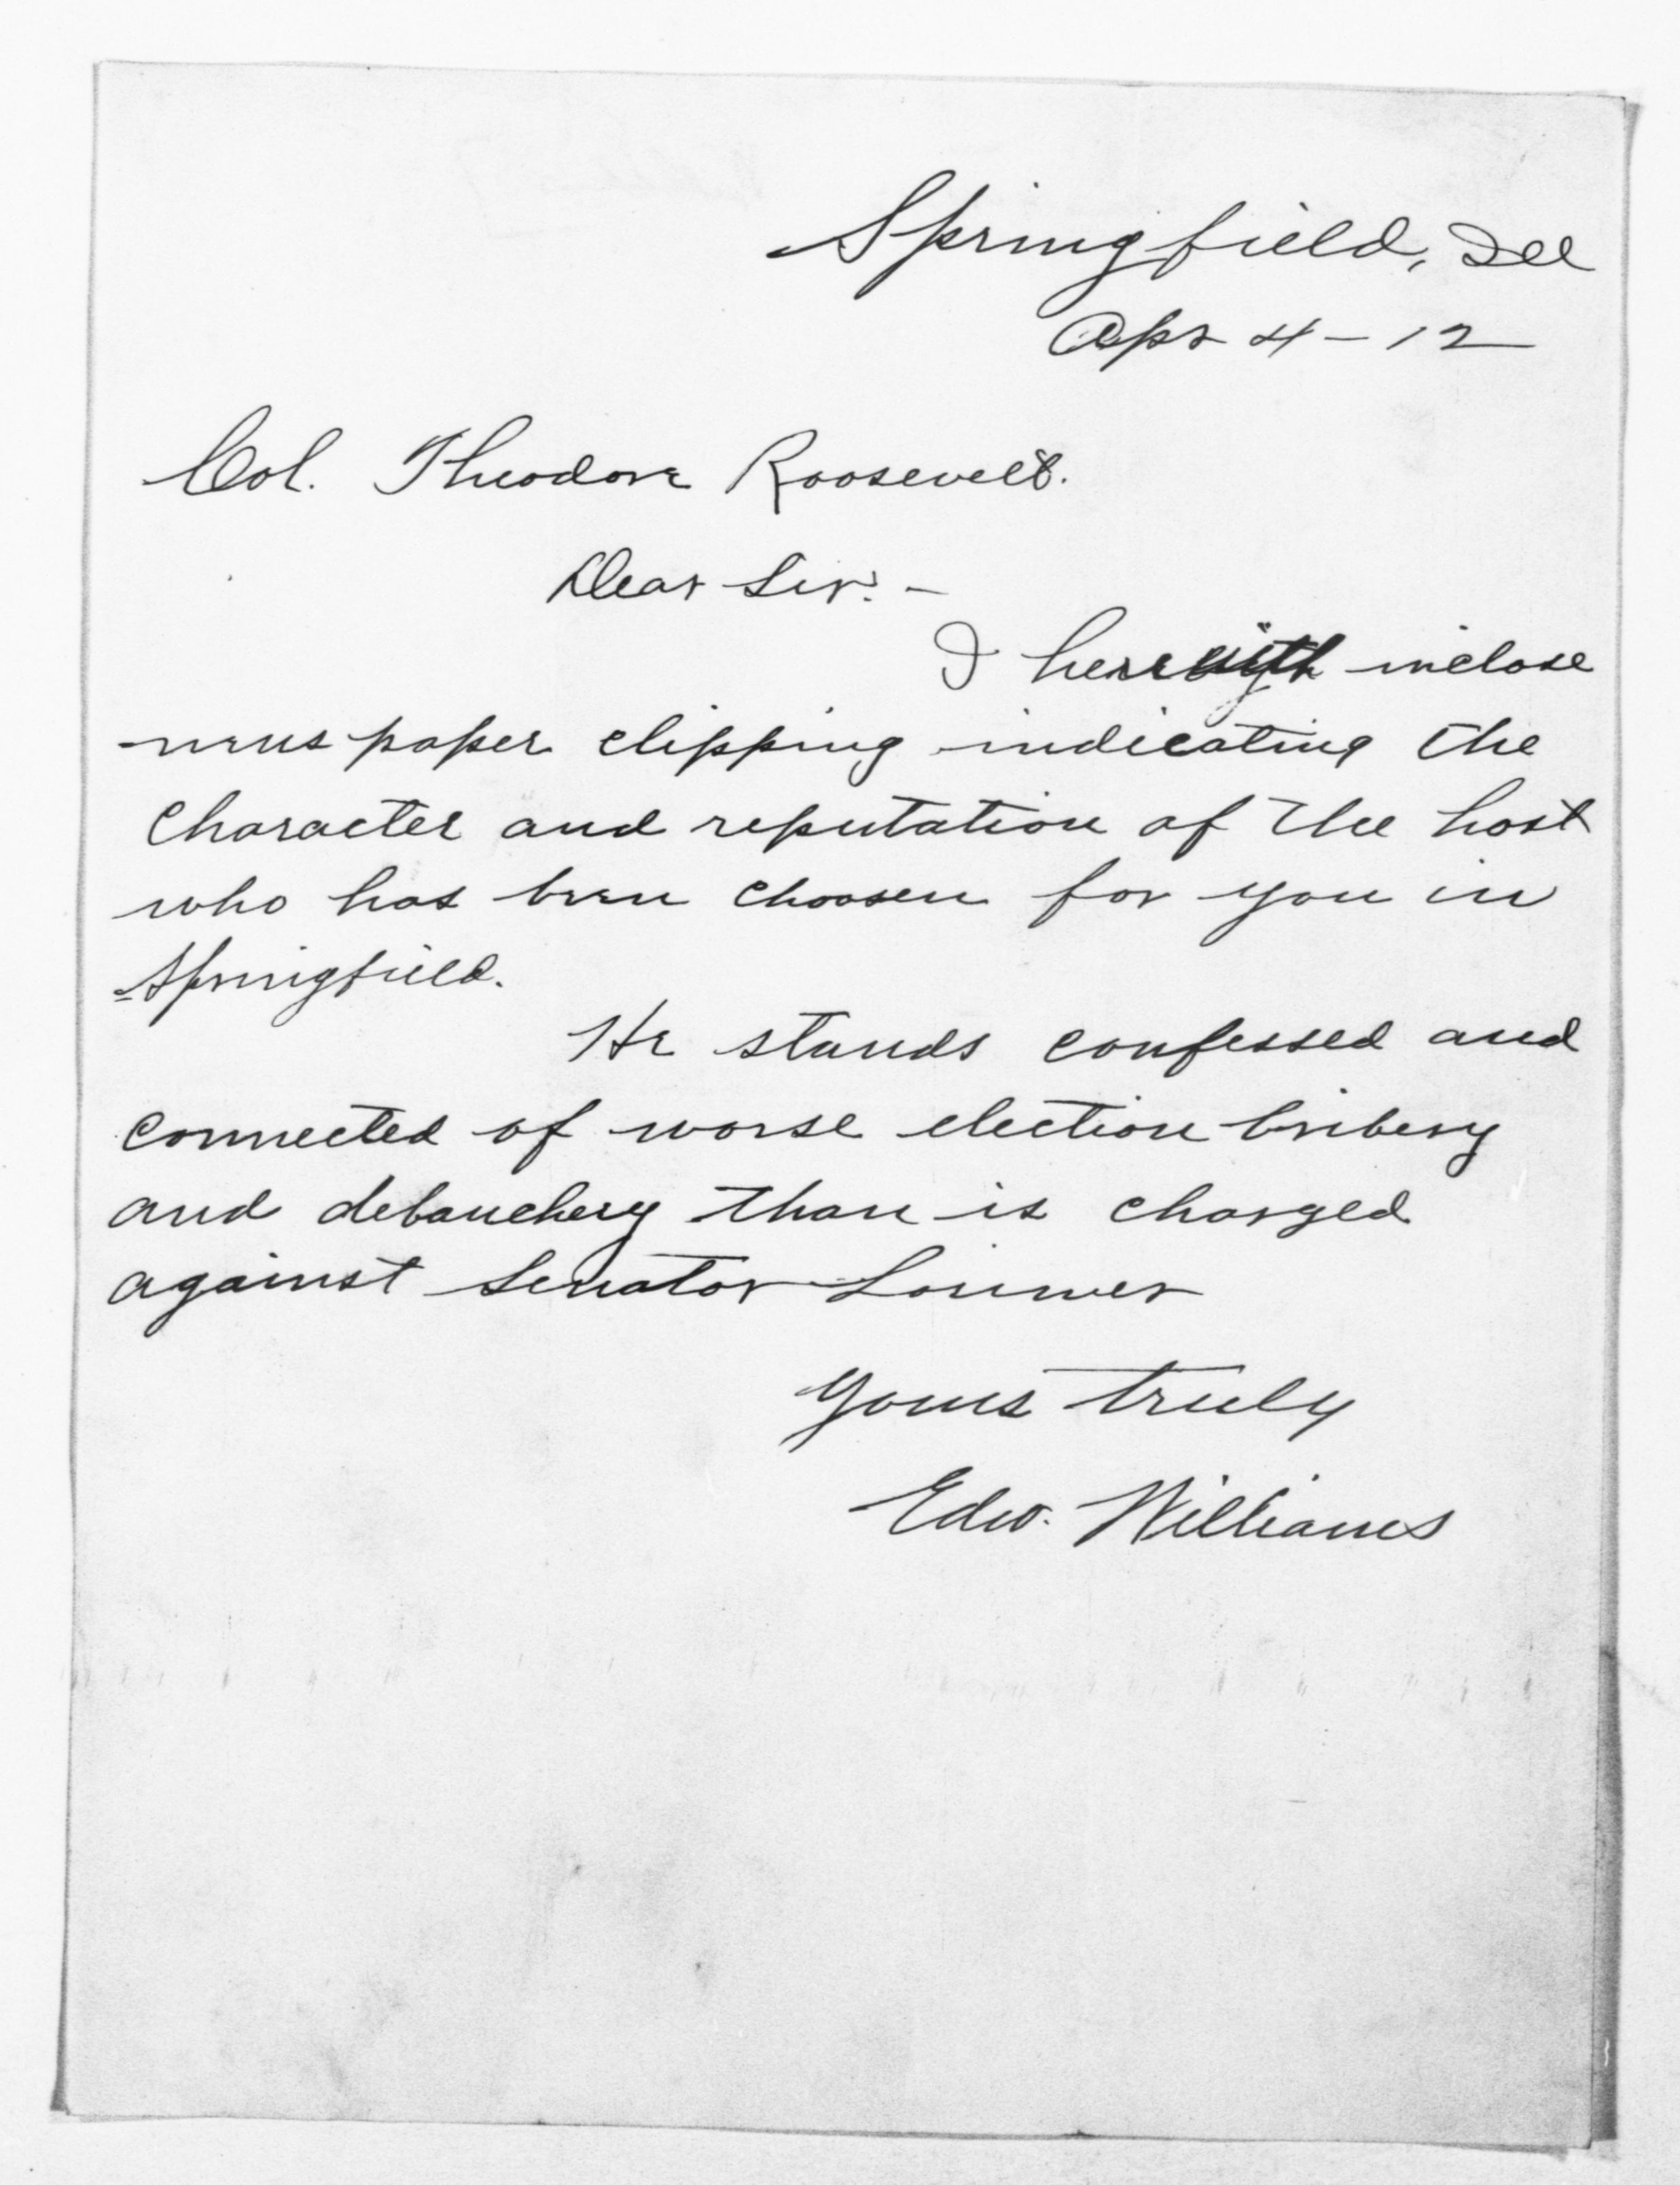 Springfield, Ill
Apr 4-12
Col. Theodore Roosevelt.
Dear Sir:-
I herewith inclose
news paper clipping indicating the
character and reputation of the host
who has been choosen for you in
Springfield.
He stands confessed and
connected of worse election bribery
and debauchery than is charged
against Senator Lorimer
Yours truly
Edw. Williams